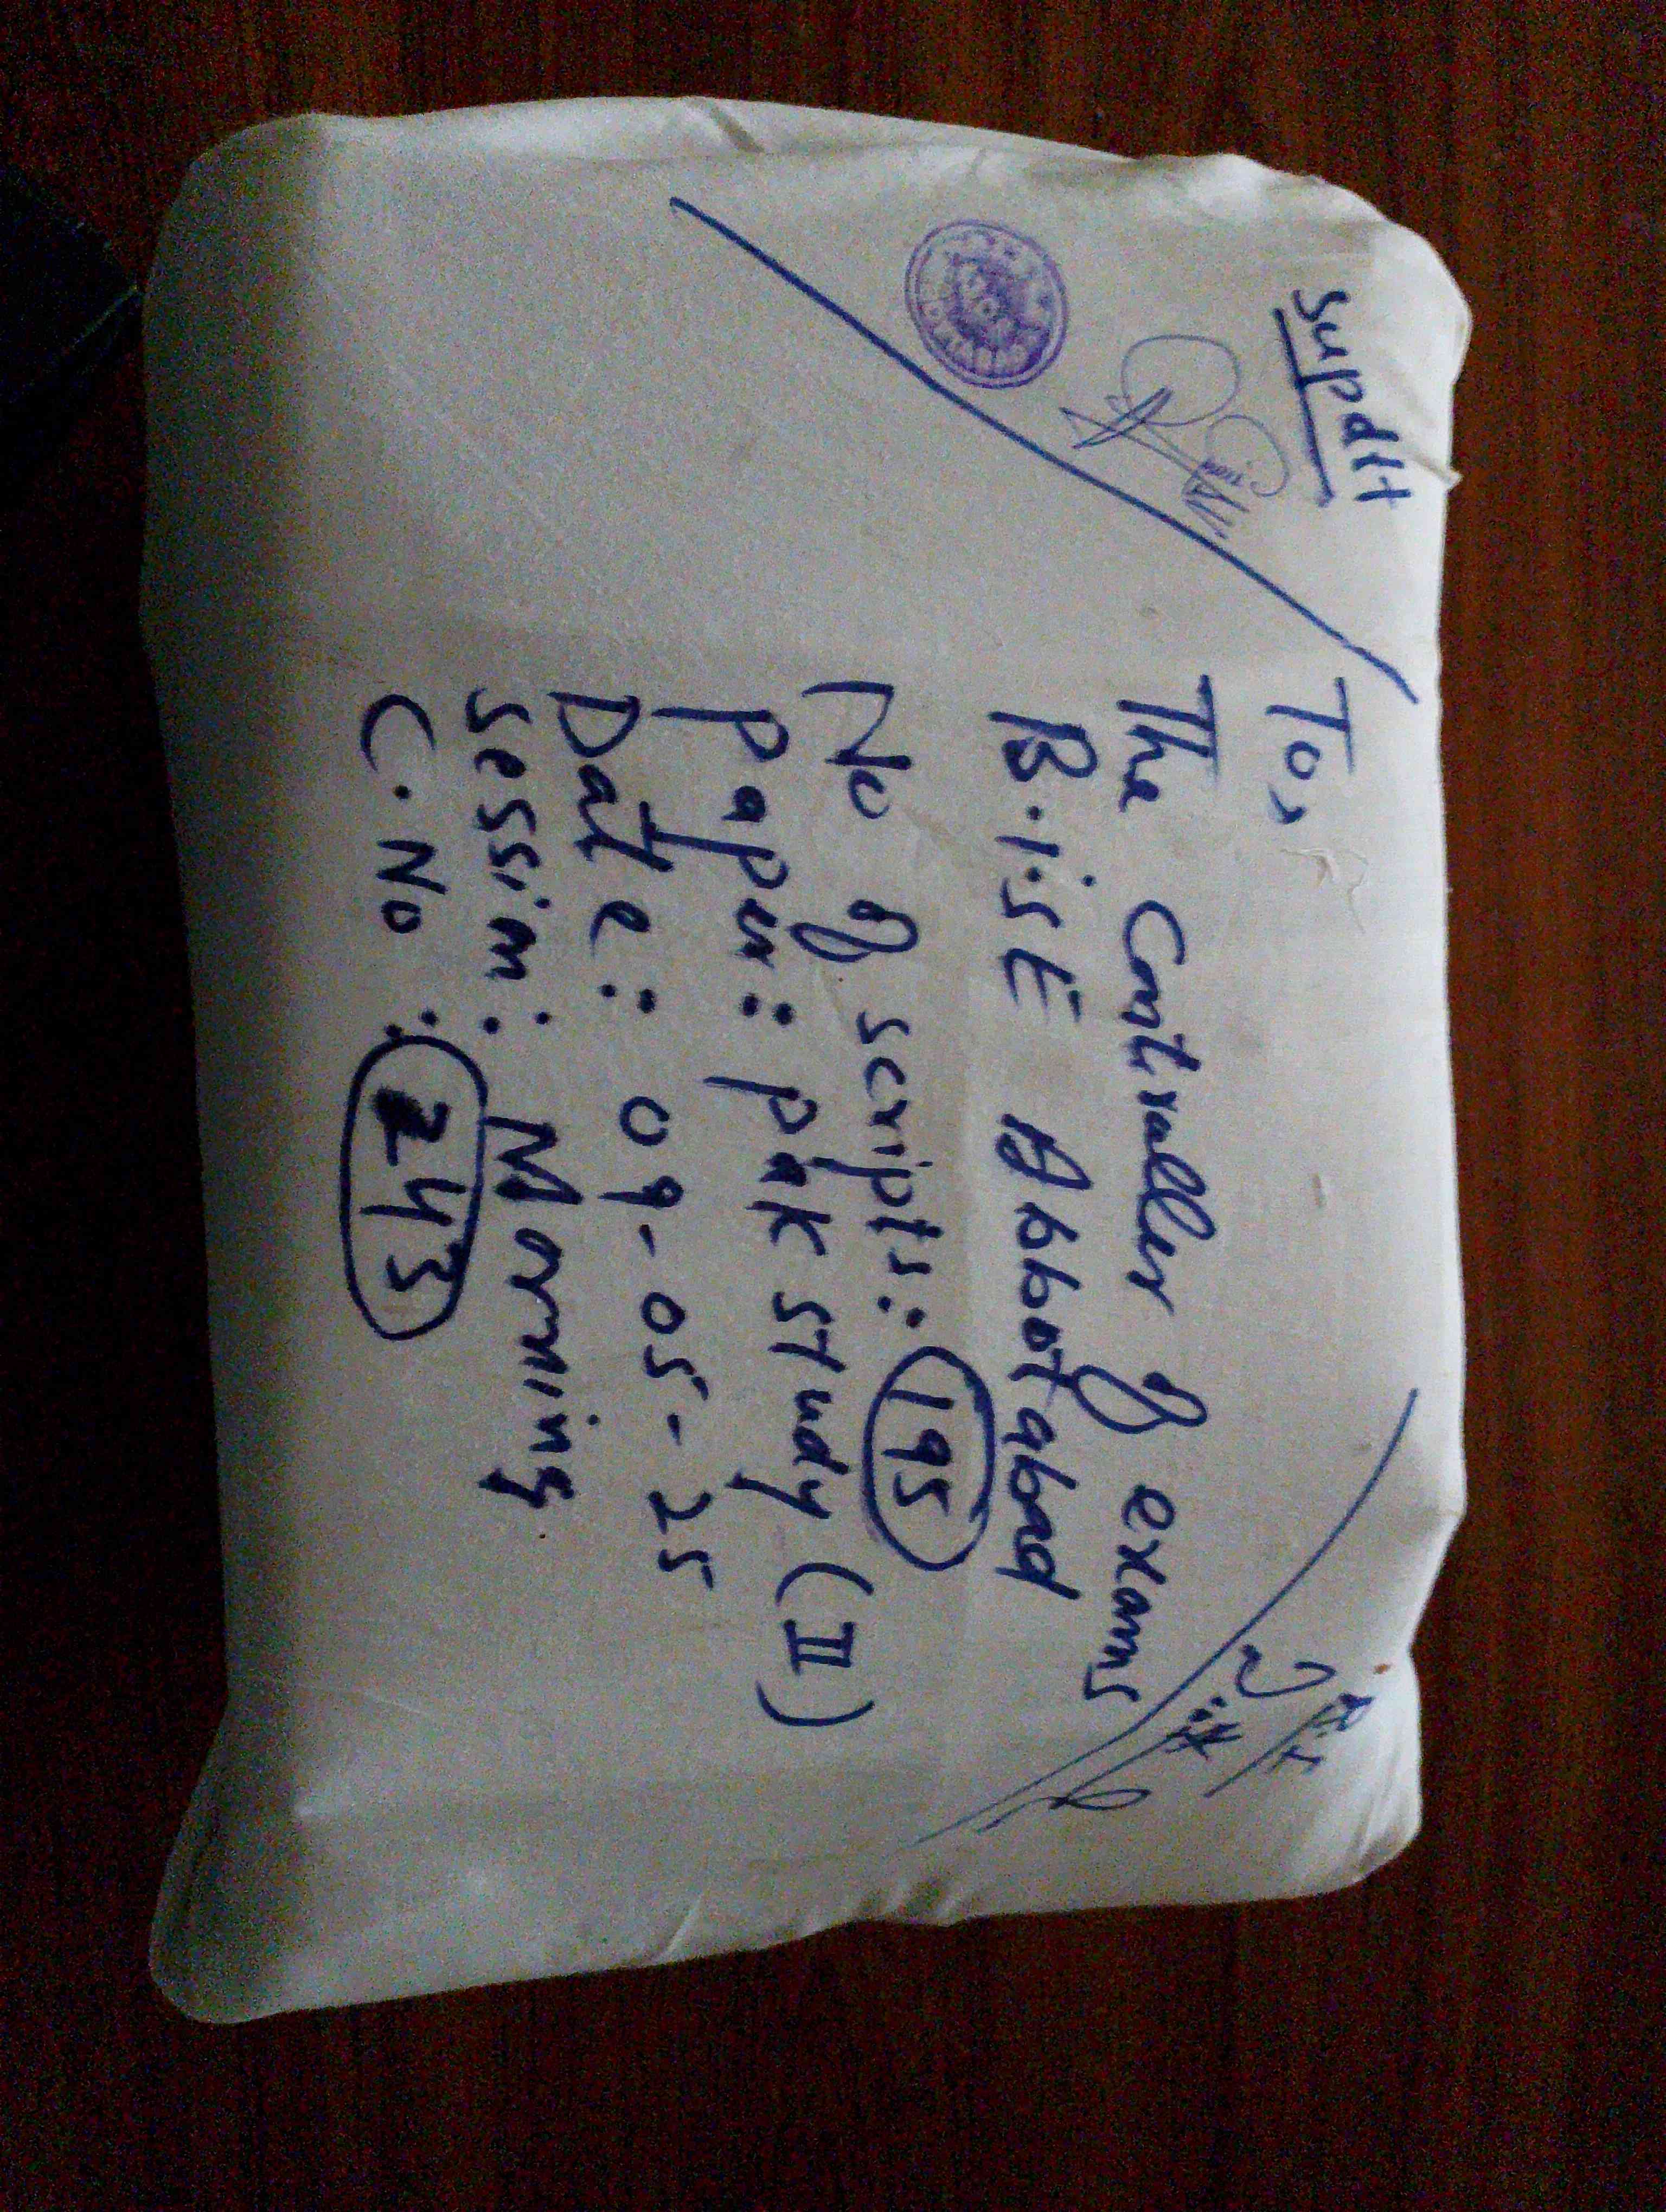 Supdtt
To,
The Controller of exams
B.ise Abbotabad
No of scripts: 195
Paper: Pak study (II)
Date: 09-05-25
session: Morning
C.No: 243